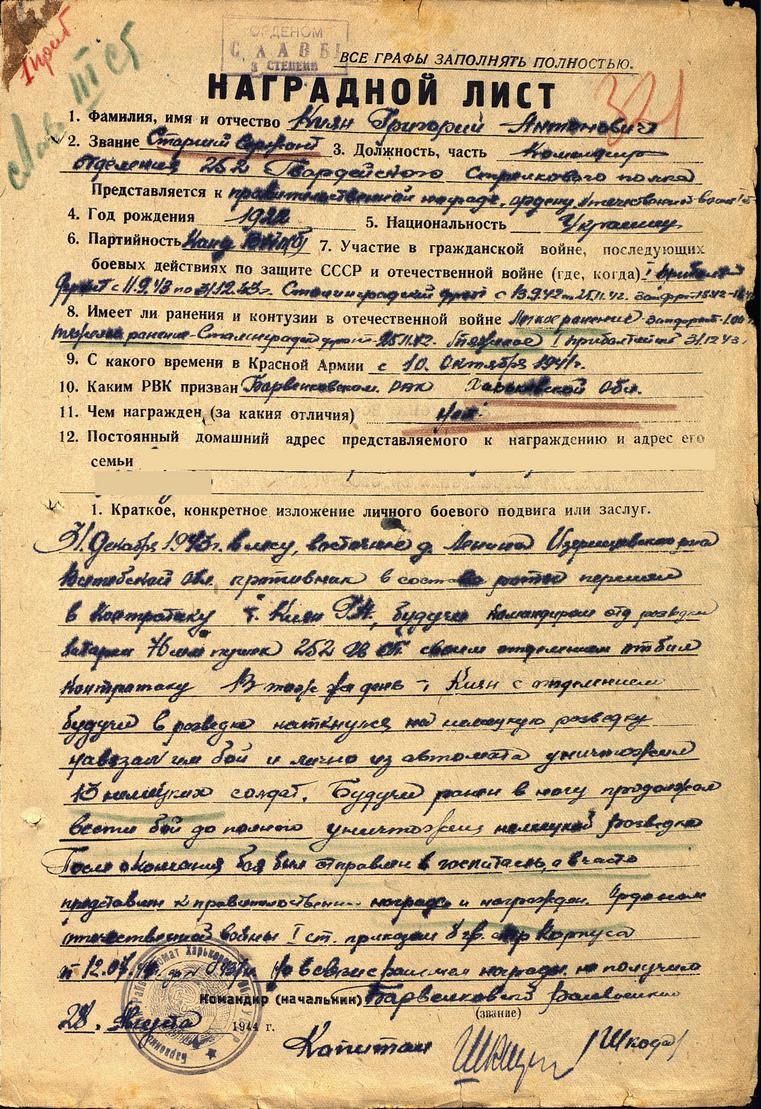 ОРДЕНОМ
СЛАВЫ
3 СТЕПЕНИ
ВСЕ ГРАФЫ ЗАПОЛНЯТЬ ПОЛНОСТЬЮ.
НАГРАДНОЙ ЛИСТ
1. Фамилия, имя и отчество Киян Григорий Антонович
2. Звание Старший Сержант 3. Должность, часть Командир
отделения 252 Гвардейского Стрелкового полка
Представляется к правительственной награде, ордену Отечественной Войны
4. Год рождения 1922 5. Национальность Украинец
6. Партийность Канд 7. Участие в гражданской войне, последующих
боевых действиях по защите СССР и отечественной войне (где, когда)
фронт с 11.9.43 по 31.12.43г. Сталинградский фронт с 13.9.42 по 25.11.42.
8. Имеет ли ранения и контузии в отечественной войне Легкое ранение
ранение Сталинград 25.11.42. 31.12.43г
9. С какого времени в Красной Армии с 10. Октября 1941г.
10. Каким РВК призван Барвенковским РВК Харьковской Обл.
11. Чем награжден (за какия отличия) Нет
12. Постоянный домашний адрес представляемого к награждению и адрес его
семьи
1. Краткое, конкретное изложение личного боевого подвига или заслуг.
31 Декабря 1943г. в лесу, восточнее д. Ленино
Витебской Обл. противник в составе роты перешел
в Контратаку т. Киян Г.А. будучи командиром отд разведки
батареи 76 мм пушек 252 Гв СП своим отделением отбил
контратаку В тот же день т Киян с отделением
будучи в разведке наткнулся на немецкую разведку
навязал им бой и лично из автомата уничтожил
13 немецких солдат. Будучи ранен в ногу продолжал
вести бой до полного уничтожения немецкой разведки
После окончания боя был отправлен в госпиталь, а в части
представлен к правительственной награде и награжден Орденом
отечественной войны I ст. приказом корпуса
от 12.01.44 награды не получил
Командир (начальник) Барвенковский Райвоенком
(звание)
28. Августа 1944 г.
Капитан /Шкода/